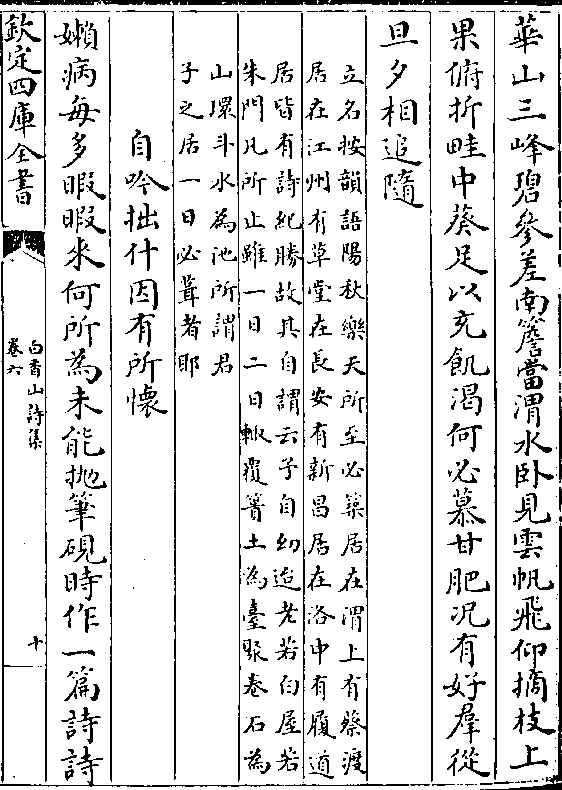 華山三峰碧參差南簷當渭水卧見雲帆飛仰摘枝上
果俯折畦中葵足以充飢渴何必慕甘肥況有好羣從
旦夕相追隨
立名按韻語陽秋樂天所至必築居在渭上有蔡渡
居在江州有草堂在長安有新昌居在洛中有履道
居皆有詩紀勝故其自謂云予自幼迨老若白屋若
朱門凡所止雖一日二日輙覆簣土為臺聚卷石為
山環斗水為池所謂君
子之居一日必葺者耶
自吟拙什因有所懷
嬾病每多暇暇來何所為未能抛筆硯時作一篇詩詩
欽定四庫全書
白香山詩集
卷六
十